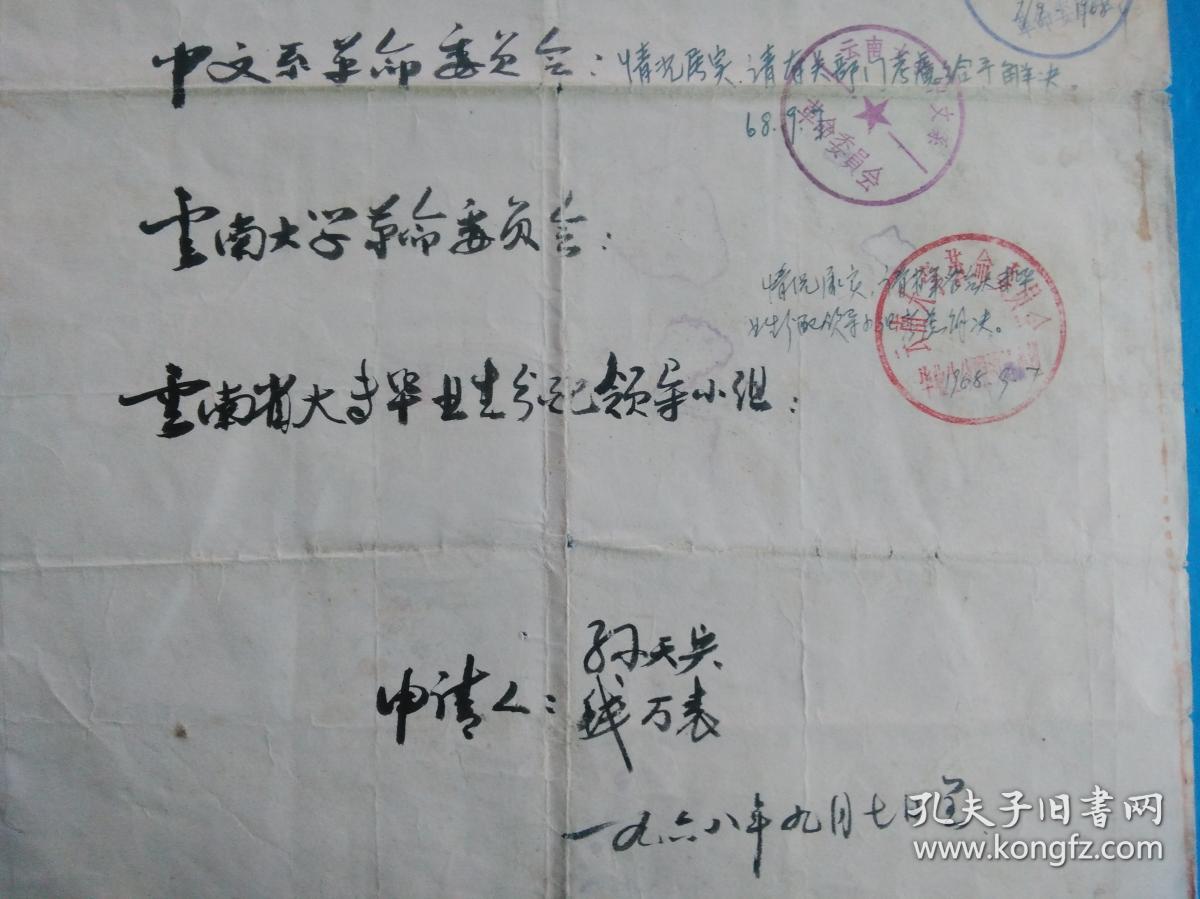 1968.
中文系革命委员会：情况属实，请有关部门考虑给予解决
68.9.7
云南 中文系
革命委員会
雲南大学革命委员会：
情况属实，请 大专毕
业生分配领导小组 解决。
云南大学革命委员会
1968.9.7
雲南省大专毕业生分配领导小组：
申请人：孙天兵
钱万表
一九六八年九月七日
孔夫子旧书网
www.kongfz.com